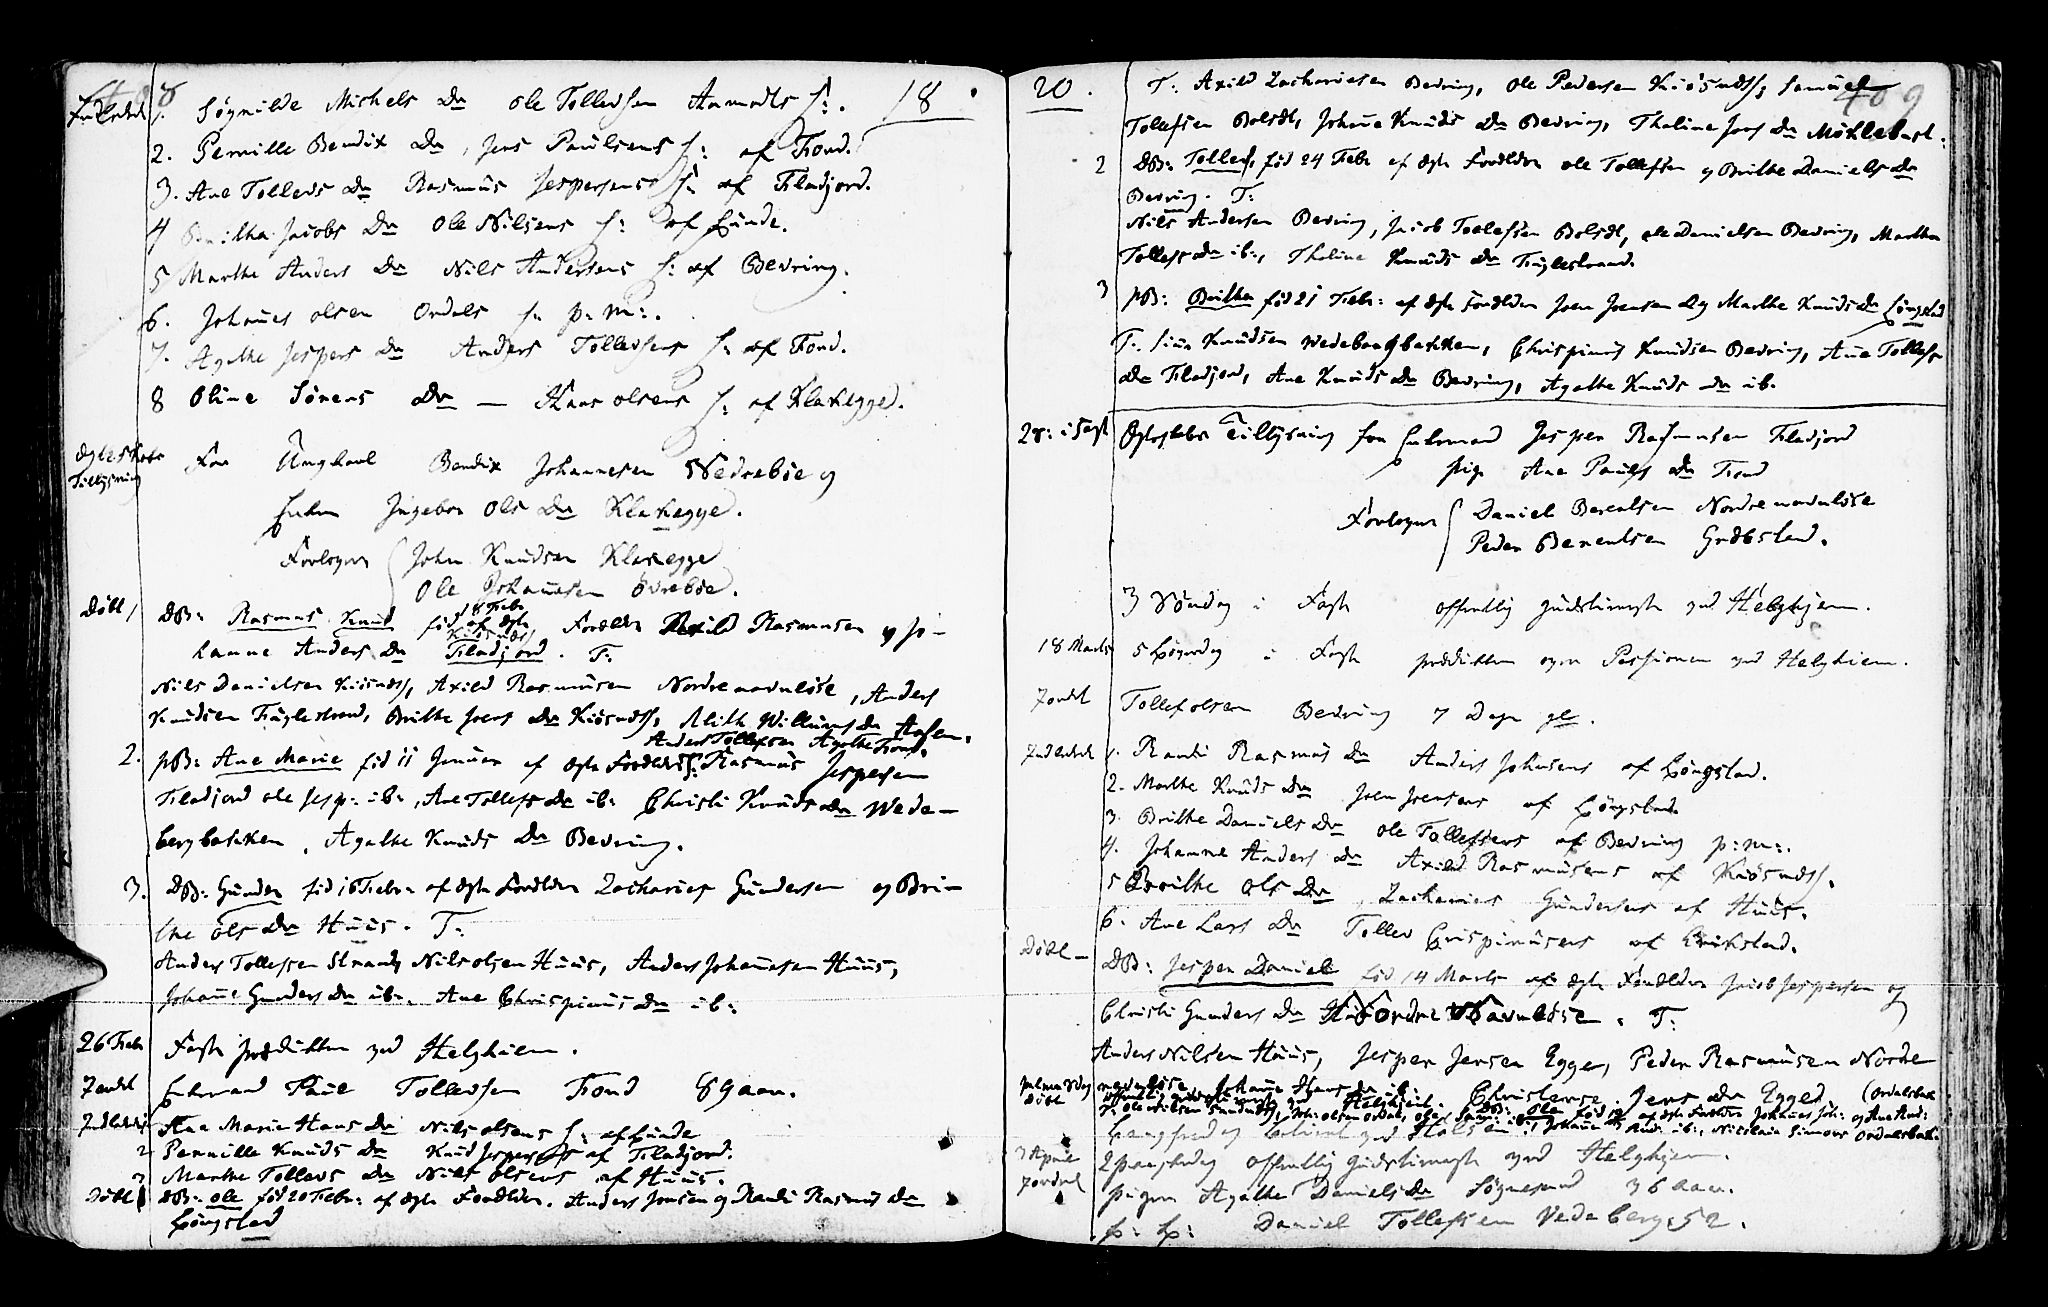 408
Indledede 1. Søgnilde Michels Dr Ole Tollevsen Aamodts H: 18.
2. Pernille Bendix Dr, Jens Paulsens H: af Fond.
3. Ane Tolleds Dr Rasmus Jespersens H: af Fladjord.
4 Britha Jacobs Dr Ole Nilsens H: af Lunde.
5 Marthe Anders Dr Nils Andersens H: af Bedring.
6. Johanes Olsen Ordals H: p: m:.
7. Agthe Jespers Dr Anders Tollevsens H: af Fond.
8 Oline Sørens Dr — Hans Olsens H: af Klakegged.
Ægteskabs Tillysning
For Ungkarl Bendix Johannesen Nedrebøe og
Enken Ingebor Ols Dr Klakegge.
Forlovere John Knudsen Klakegge
Ole Johannesen Øvrebøe.
Døbt 1 DB: Rasmus Knud fød 18 Febr af ægte Forældre Axild Rasmusen og Jo-
hanne Anders Dr Fladjord. T:
Nils Danielsen Kiøsnæs, Axild Rasmusen Nordre navnløse, Anders
Knudsen Fuglestrand, Brithe Joens Dr Kiøsnæs, Alith Willums Dr Aasen.
Anders Tollefsen Agothe Fond.
2. pB: Ane Marie fød 11 Januar af ægte Forældre Rasmus Jespersen
Fladjord Ole Jesp: ib:, Ane Tollefs Dr ib: Christi Knuds Dr Wede-
bergbakken, Agathe Knuds Dr Bedring.
3. DB: Gunder fød 16 Febr af ægte Forældre Zacharies Gundersen og Bri-
the Ols Dr Huus. T:
Anders Tollefsen Strand, Nils Olsen Huus, Anders Johanesen Huus,
Johane Gunders Dr ib:, Ane Chrispinus Dr ib:
26 Febr Faste prædikken ved Helghiem.
Jordet Enkemand Paul Tollevsen Fond 89 aar.
Indledede Ane Marie Hans Dr Nils Olsens H: af Lunde
2 Pernille Knuds Dr Knud Jespersens af Fladjord.
3 Marthe Tolleds Dr Nils Olsens af Huus.
Døbt 1 DB: Ole fød 20 Febr: af ægte Forældre. Anders Jensen og Randi Rasmus Dr
Løngstad
409
20. T: Axild Zachariesen Bedring, Ole Pedersen Kiøsnæs, Samuel
Tollefsen Bolsæt, Johane Knuds Dr Bedring, Thaline Jons Dr Møklebust.
2 DB: Tollef, fød 24 Febr af ægte Forældre Ole Tollefsen og Brithe Daniels Dr
Bedring. T:
Nils Andersen Bedring, Jacob Tollefsen Bolsæt, Ole Danielsen Bedring, Marthe
Tollefs Dr ib:, Thaline Knuds Dr Fuglestrand.
3 pB: Brithe fød 21 Febr: af ægte Forældre Joen Joensen og Marthe Knuds Dr Løngstad
T: Knudsen Wedebergbakken, Chrispinus Knudsen Bedring, Ane Tollefs
Dr Fladjord, Ane Knuds Dr Bedring, Agathe Knuds Dr ib.
2den i Fast Ægteskabs Tillysning for Enkemand Jesper Rasmusen Fladjord
pige Ane Pauls Dr Fond
Forlovere Daniel Berentsen Nordre navnløse
Peder Berentsen Græbstad.
3 Søndag i Faste offentlig gudstieneste ved Helghjem.
18 Marts 5 Løverdag i Faste prædikken over Passionen ved Helghiem.
Jordet Tollef Olsen Bedring 7 Dage gl.
Indledede 1. Randi Rasmus Dr Anders Johnsens af Løngstad.
2. Marthe Knuds Dr Joen Joensens af Løngstad
3. Brithe Daniels Dr Ole Tollefsens af Bedring p: m:.
4. Johanne Anders Dr Axild Rasmusens af Kiøsnæs.
5 Brithe Ols Dr, Zacharies Gundersens af Huus.
6. Ane Lars Dr Tolled Crispinusens af Erikstad.
Døbt — DB: Jesper Daniel fød 14 Marts af ægte Forældre Jacob Jespersen og
Christi Gunders Dr Nordre Navnløse. T:
Anders Nilsen Huus, Jesper Jensen Egge, Peder Rasmusen Nordre
navnløse, Johane Hans Dr ib: Christense Jens Dr Egged. (Ordalsbak
palmesøndag offentlig gudstieneste ved Helghiem. DB: Ole fød af ægte Forældre Johanes Joh: og Ane And:
Døbt T: Ole Nilsen Johane And: ib:, Nicolaie Simons Ordalsbak.
Langfredag
3 April 2 paaskedag offentlig gudstieneste ved Helghjem.
Jordet pigen Agathe Daniels Dr Søgnesand 36 aar.
p: L: Daniel Tollefsen Vedeberg: 52.